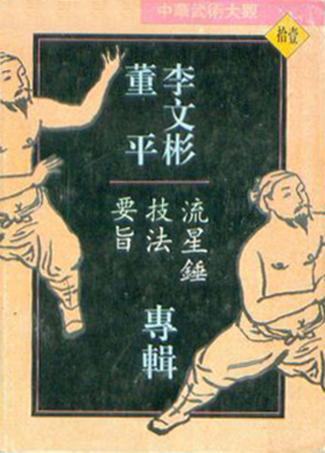 中華武術大觀
拾壹
李文彬
董平
流星錘
技法
要旨
專輯